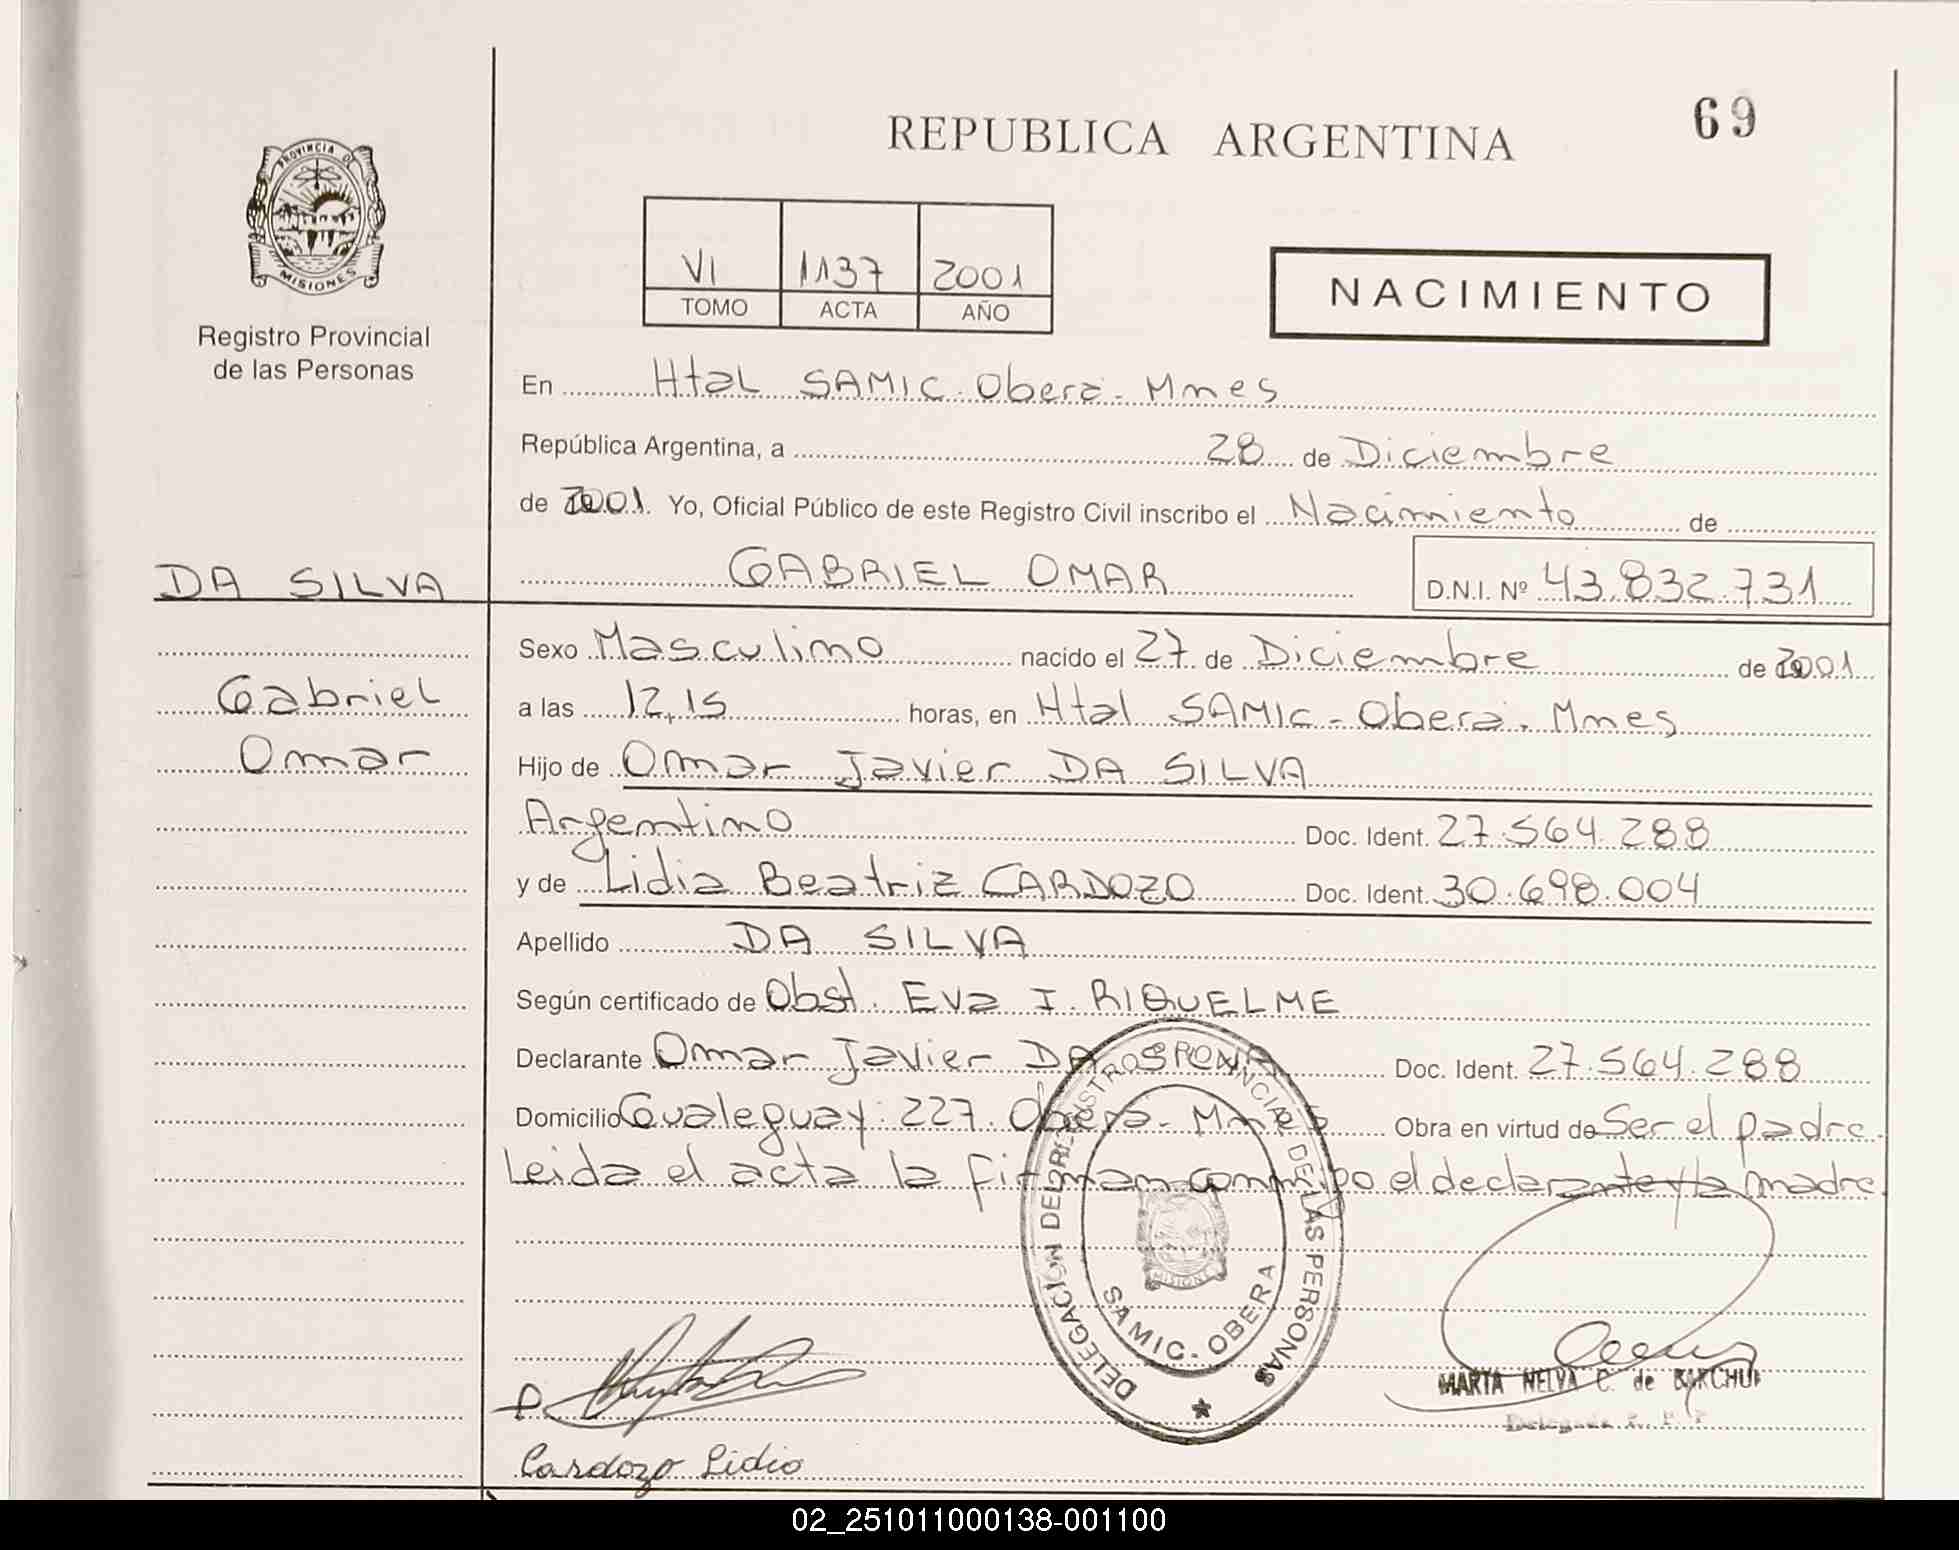 69
REPUBLICA ARGENTINA
PROVINCIA DE
MISIONES
Registro Provincial
de las Personas
VI 1137 2001
TOMO ACTA AÑO
NACIMIENTO
En Htal SAMIC. Oberá - Mnes
República Argentina, a 28 de Diciembre
de 2001. Yo, Oficial Público de este Registro Civil inscribo el Nacimiento de
DA SILVA
GABRIEL OMAR D.N.I. Nº 43.832.731
Gabriel
Omar
Sexo Masculino nacido el 27 de Diciembre de 2001
a las 12,15 horas, en Htal SAMIC - Oberá. Mnes
Hijo de Omar Javier DA SILVA
Argentino Doc. Ident. 27.564.288
y de Lidia Beatriz CARDOZO Doc. Ident. 30.698.004
Apellido DA SILVA
Según certificado de Obst. Eva I. RIQUELME
Declarante Omar Javier DA Doc. Ident. 27.564.288
Domicilio Gualeguay 227. Oberá - Mnes Obra en virtud de Ser el padre.
Leida el acta la firman conmigo el declarante y la madre.
DELEGACIÓN DEL REGISTRO PROVINCIAL DE LAS PERSONAS
MISIONES
SAMIC - OBERA
MARTA NELVA C. de
Delegada R. P. P
Cardozo Lidia
02_251011000138-001100